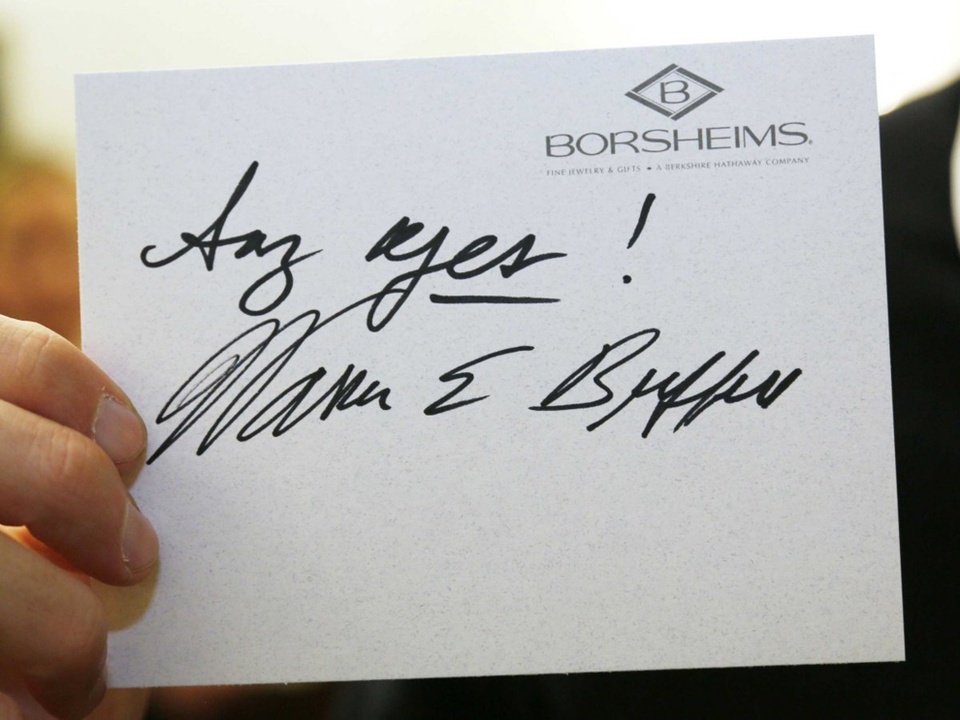 B
BORSHEIMS®
FINE JEWELRY & GIFTS • A BERKSHIRE HATHAWAY COMPANY
Say yes!
Warren E Buffett